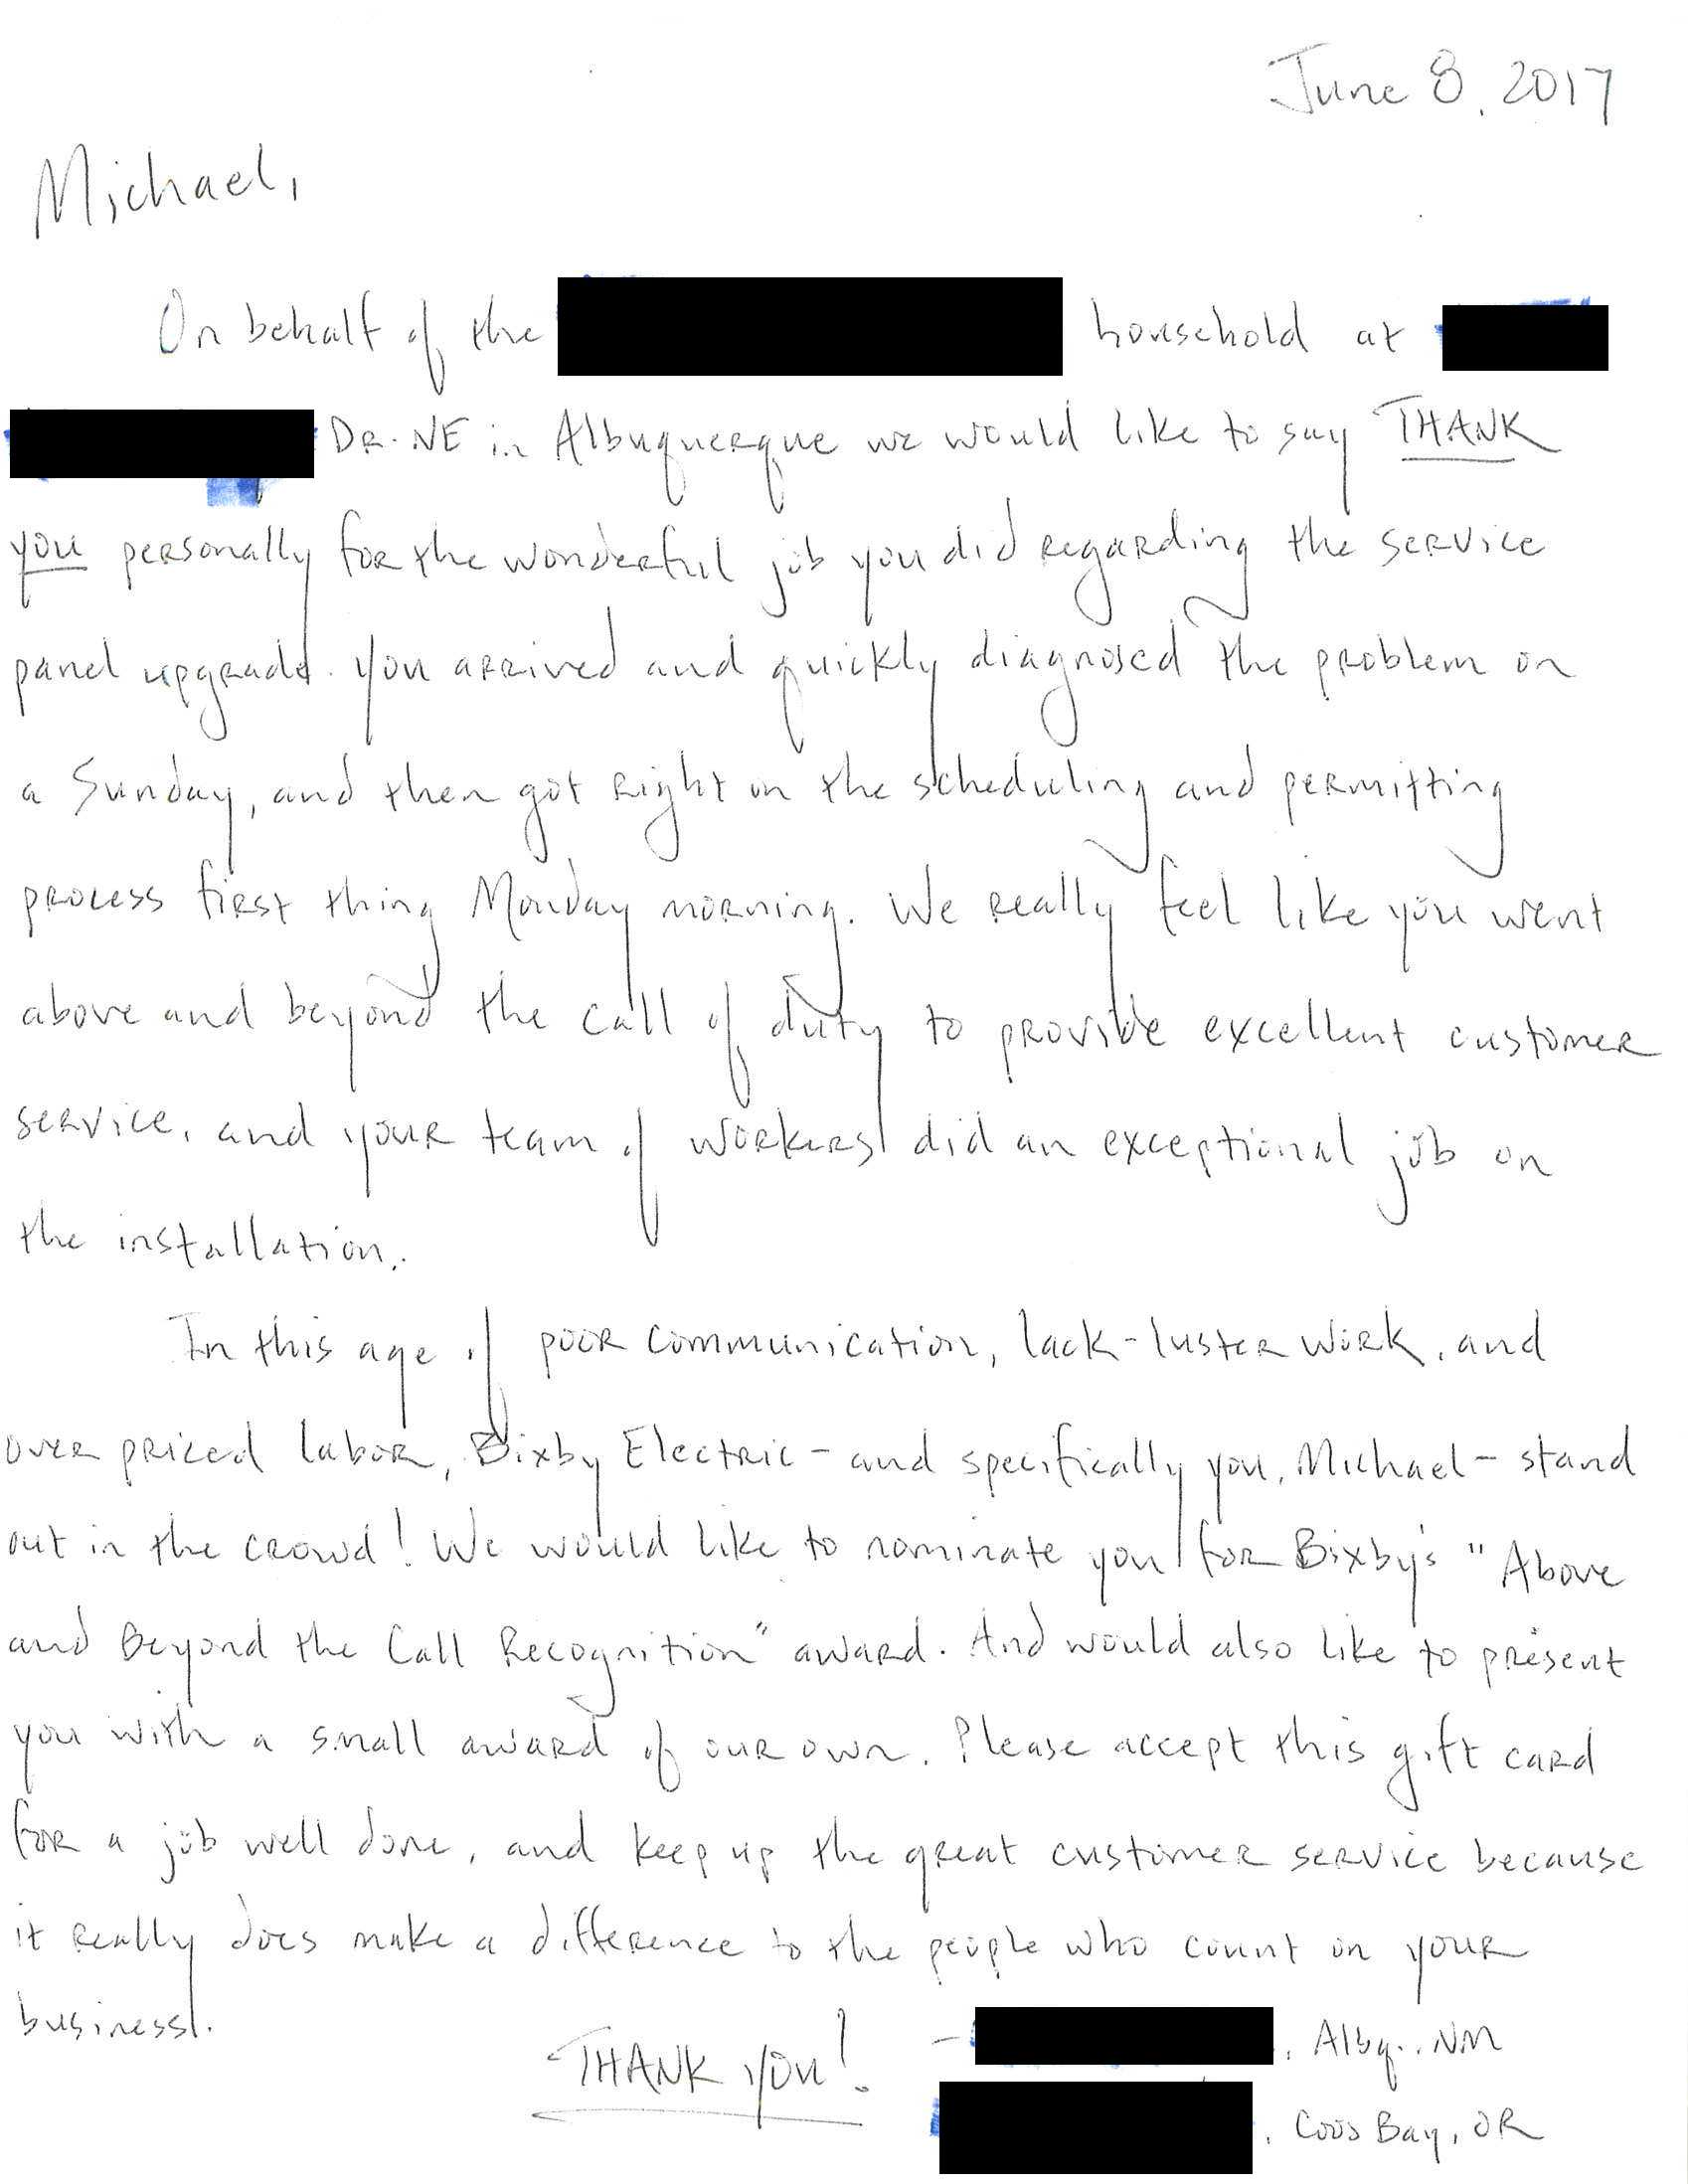 June 8, 2017
Michael,
On behalf of the household at
Dr. NE in Albuquerque we would like to say THANK
you personally for the wonderful job you did regarding the service
panel upgrade. You arrived and quickly diagnosed the problem on
a Sunday, and then got right on the scheduling and permitting
process first thing Monday morning. We really feel like you went
above and beyond the call of duty to provide excellent customer
service, and your team of workers did an exceptional job on
the installation.
In this age of poor communication, lack-luster work, and
over priced labor, Bixby Electric - and specifically you, Michael - stand
out in the crowd! We would like to nominate you for Bixby's "Above
and Beyond the Call Recognition" award. And would also like to present
you with a small award of our own. Please accept this gift card
for a job well done, and keep up the great customer service because
it really does make a difference to the people who count on your
business.
THANK YOU!
- , Albq., NM
, Coos Bay, OR